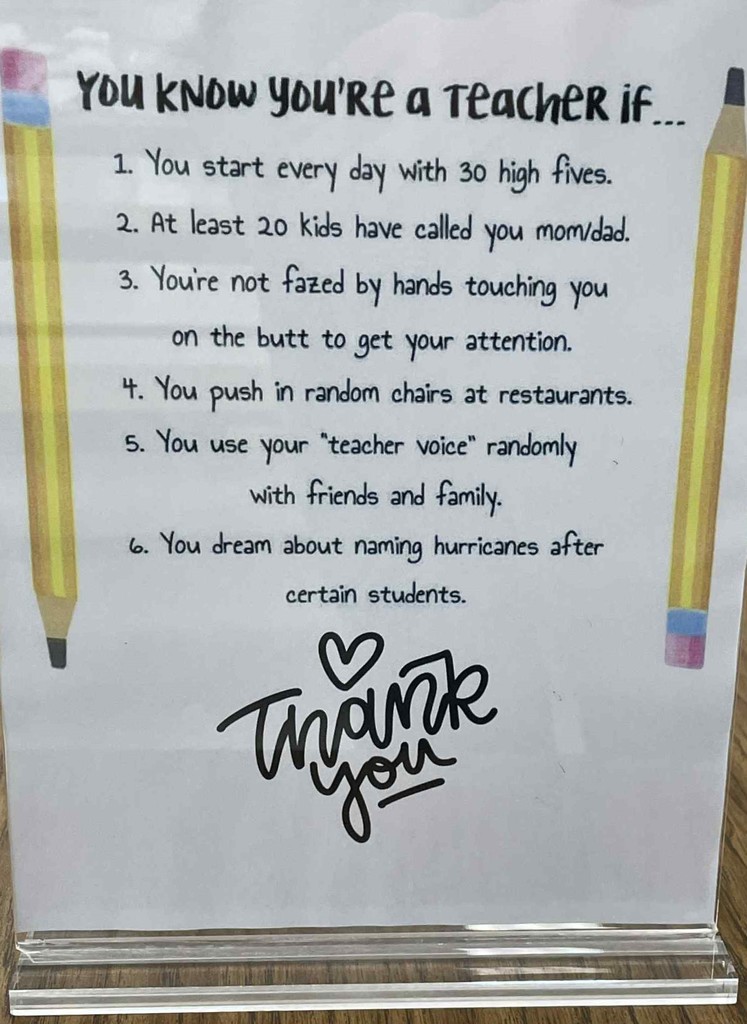 YOU KNOW YOU'RE A TEACHER IF...
1. You start every day with 30 high fives.
2. At least 20 kids have called you mom/dad.
3. You're not fazed by hands touching you
on the butt to get your attention.
4. You push in random chairs at restaurants.
5. You use your "teacher voice" randomly
with friends and family.
6. You dream about naming hurricanes after
certain students.
Thank
you